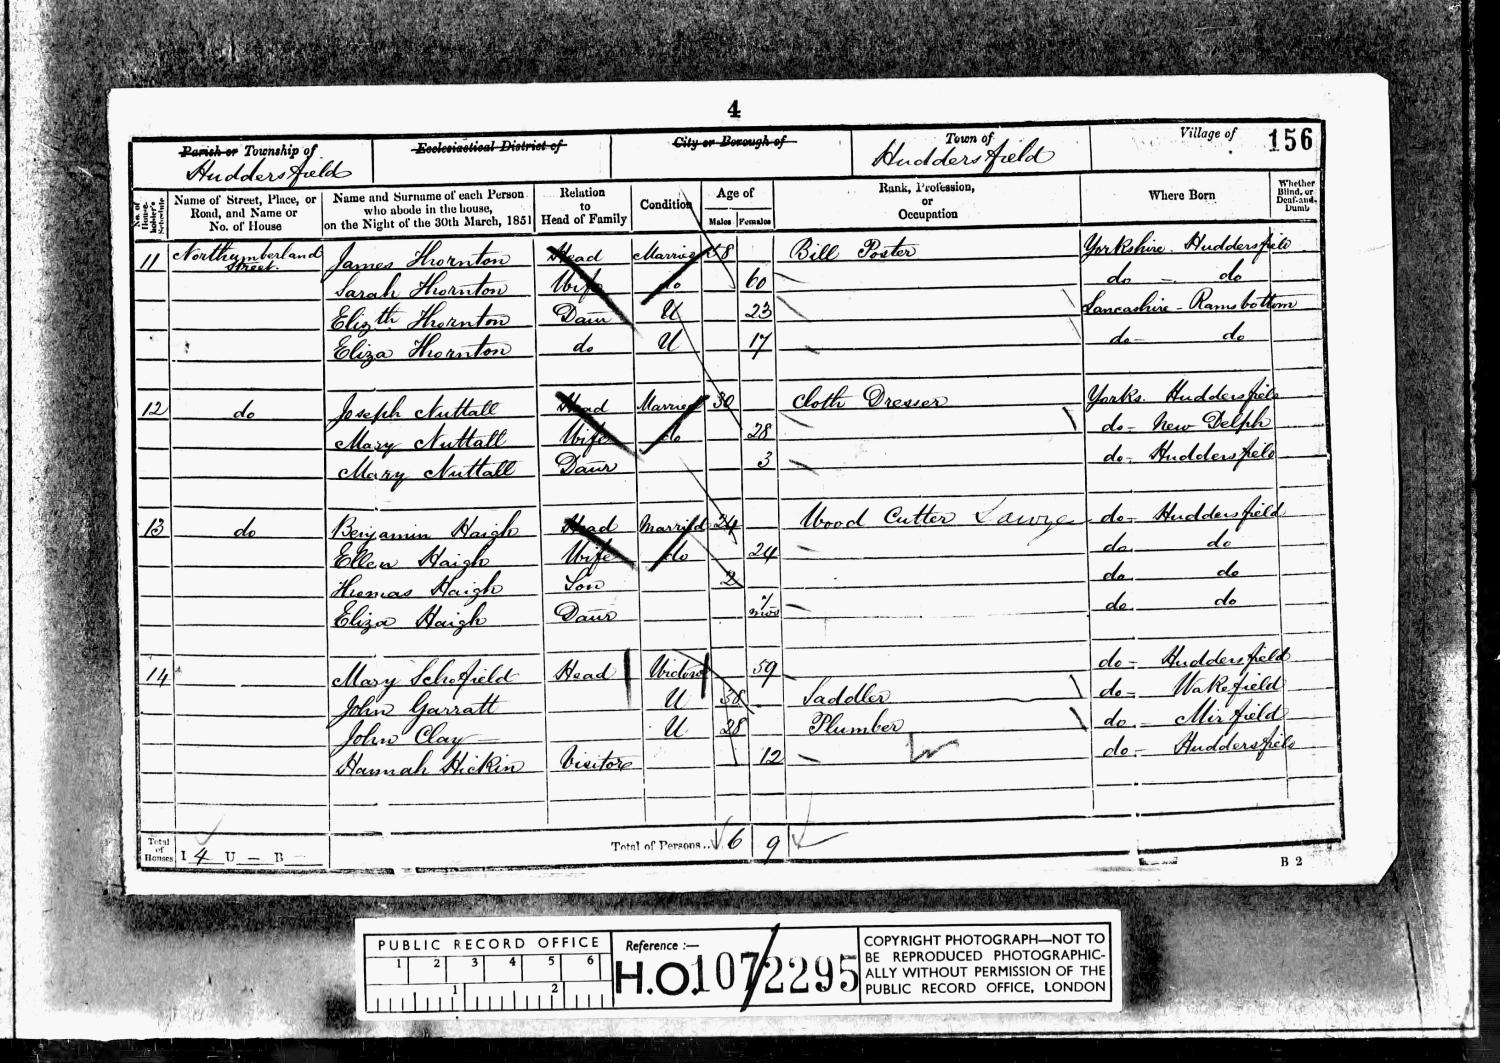 4
Parish or Township of
Huddersfield
Ecclesiastical District of
City or Borough of
Town of
Huddersfield
Village of
156
No. of House-holder's Schedule
Name of Street, Place, or Road, and Name or No. of House
Name and Surname of each Person who abode in the house, on the Night of the 30th March, 1851
Relation to Head of Family
Condition
Age of
Males Females
Rank, Profession, or Occupation
Where Born
Whether Blind, or Deaf-and-Dumb
11 Northumberland Street James Thornton Head Married 58 Bill Poster Yorkshire Huddersfield
Sarah Thornton Wife do 60 do - do
Elizth Thornton Daur U 23 Lancashire - Ramsbottom
Eliza Thornton do U 17 do - do
12 do Joseph Nuttall Head Married 30 Cloth Dresser Yorks. Huddersfield
Mary Nuttall Wife do 28 do - New Delph
Mary Nuttall Daur 3 do - Huddersfield
13 do Benjamin Haigh Head Married 24 Wood Cutter Sawyer do - Huddersfield
Ellen Haigh Wife do 24 do do
Thomas Haigh Son 2 do do
Eliza Haigh Daur mos do do
14 Mary Schofield Head Widow 59 do - Huddersfield
John Garratt U 38 Saddler do - Wakefield
John Clay U 28 Plumber do - Mirfield
Hannah Hickin Visitor 12 do - Huddersfield
Total of Houses I 4 U - B
Total of Persons.. 6 9
B 2
PUBLIC RECORD OFFICE
1 2 3 4 5 6
1 2
Reference :-
H.O. 107/2295
COPYRIGHT PHOTOGRAPH—NOT TO
BE REPRODUCED PHOTOGRAPHIC-
ALLY WITHOUT PERMISSION OF THE
PUBLIC RECORD OFFICE, LONDON